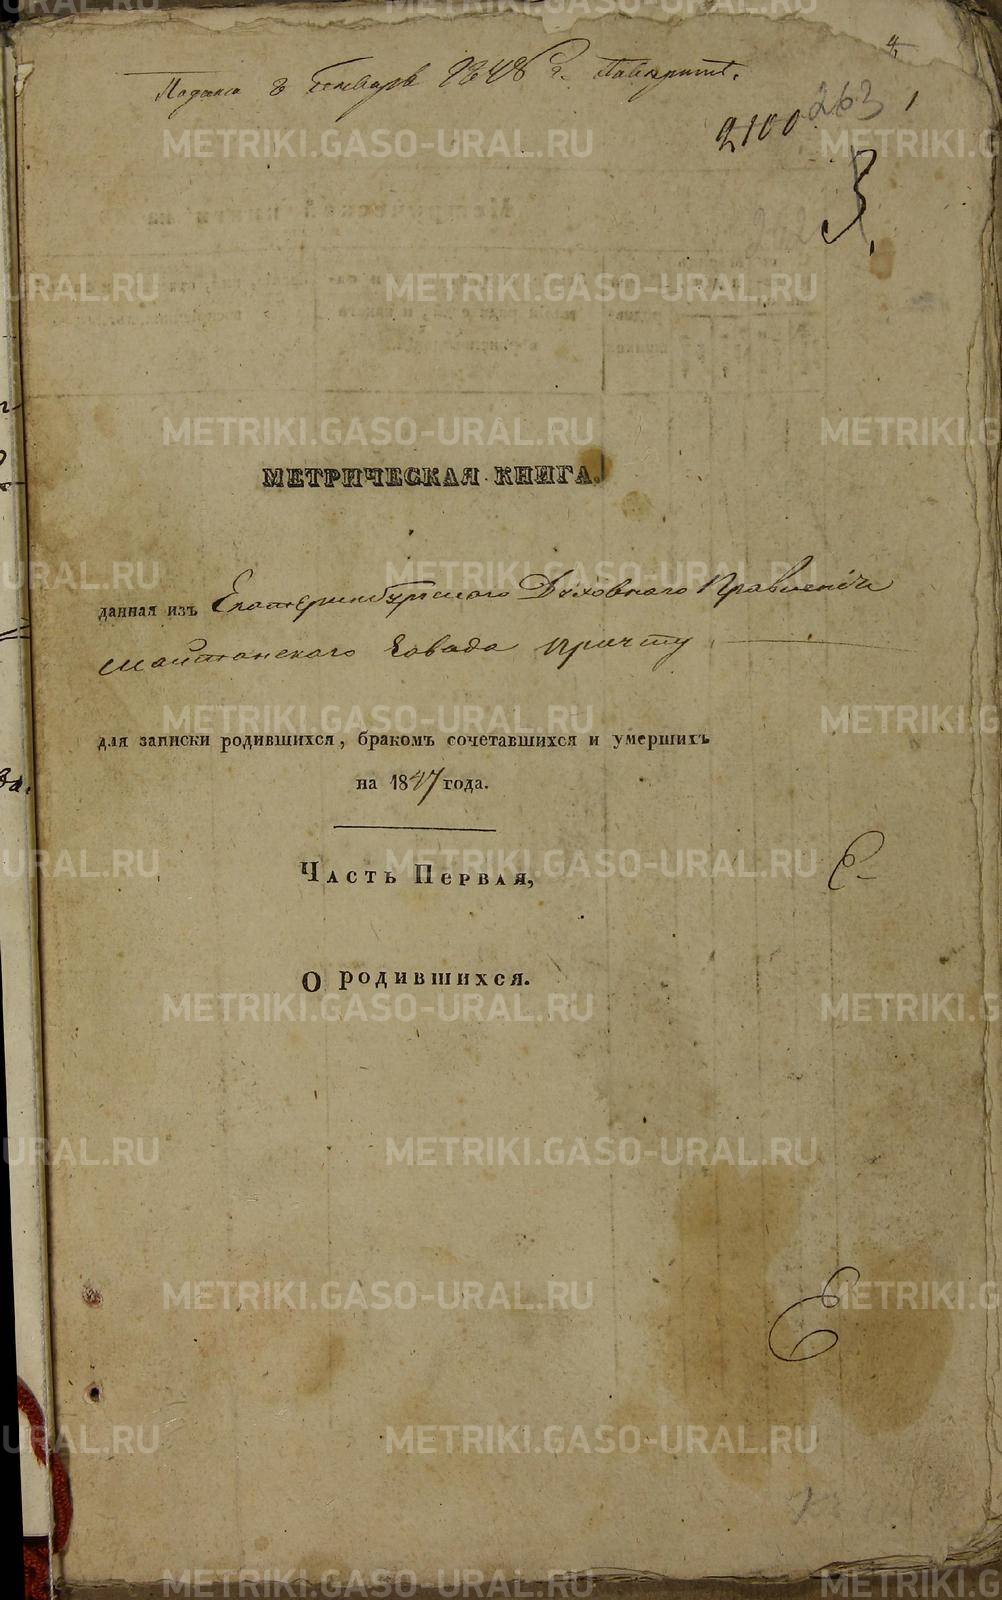 4
Подана 8 Генваря 1848 г.
2100 263 1
3.
МЕТРИЧЕСКАЯ КНИГА.
данная изъ Екатеринбургскаго Духовнаго Правленія
Шайтанскаго Завода причту
для записки родившихся, бракомъ сочетавшихся и умершихъ
на 1847 года.
Часть Первая,
О родившихся.
METRIKI.GASO-URAL.RU